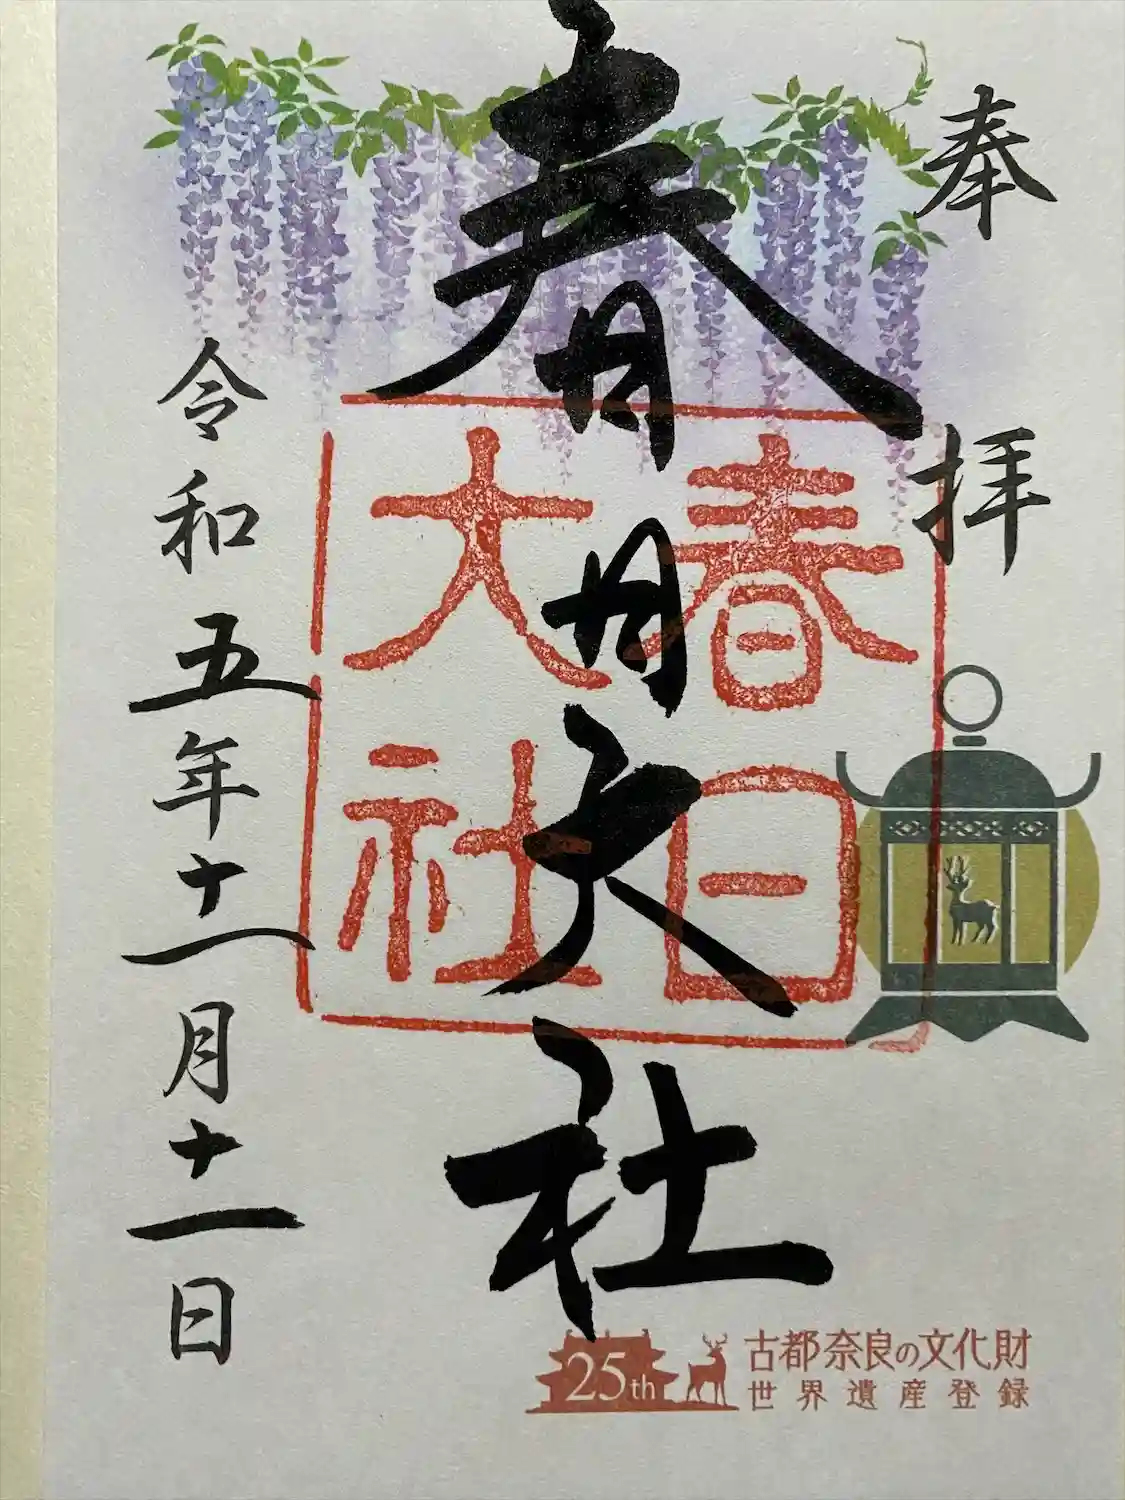 奉拝
春日大社
春日
大社
令和五年十一月十一日
25th
古都奈良の文化財
世界遺産登録